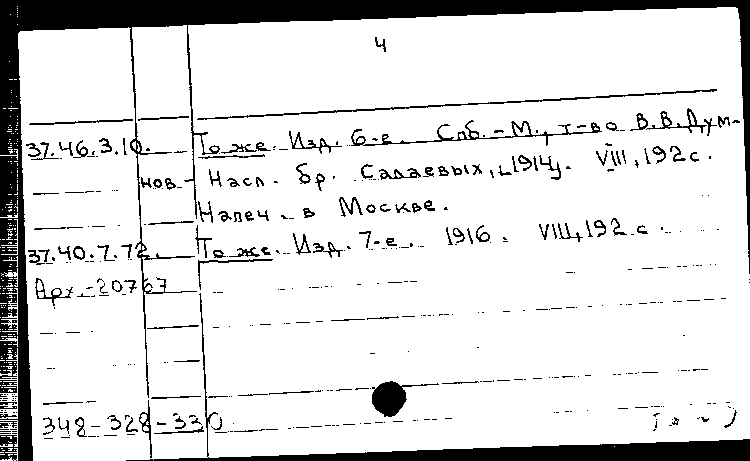 4
37.46.3.10. То же. Изд. 6-е. Спб. - М., т-во В.В. Дум-
нов - Насл. бр. Салаевых, [1914]. VIII, 192 с.
Напеч. в Москве.
37.40.7.72. То же. Изд. 7-е. 1916. VIII, 192 с.
Арх.-20767
348-328-330